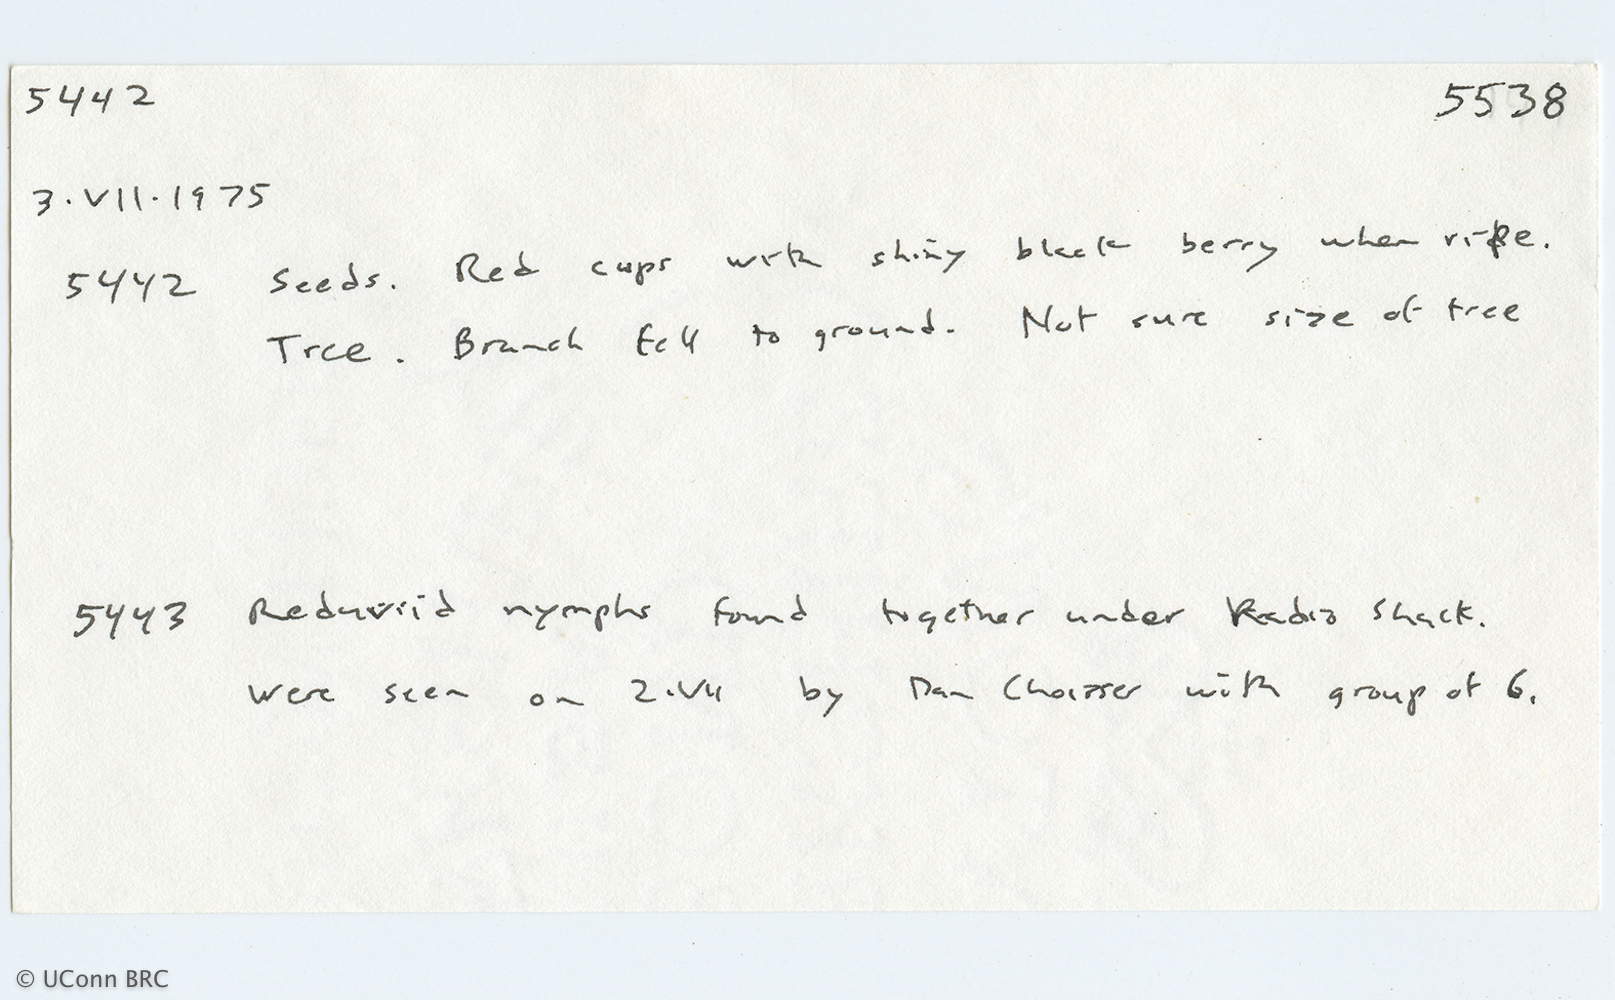 5442 5538
3.VII.1975
5442 Seeds. Red cups with shiny black berry when ripe.
Tree. Branch fell to ground. Not sure size of tree
5443 Reduviid nymphs found together under Radio Shack.
Were seen on 2.VII by Dan with group of 6.
© UConn BRC